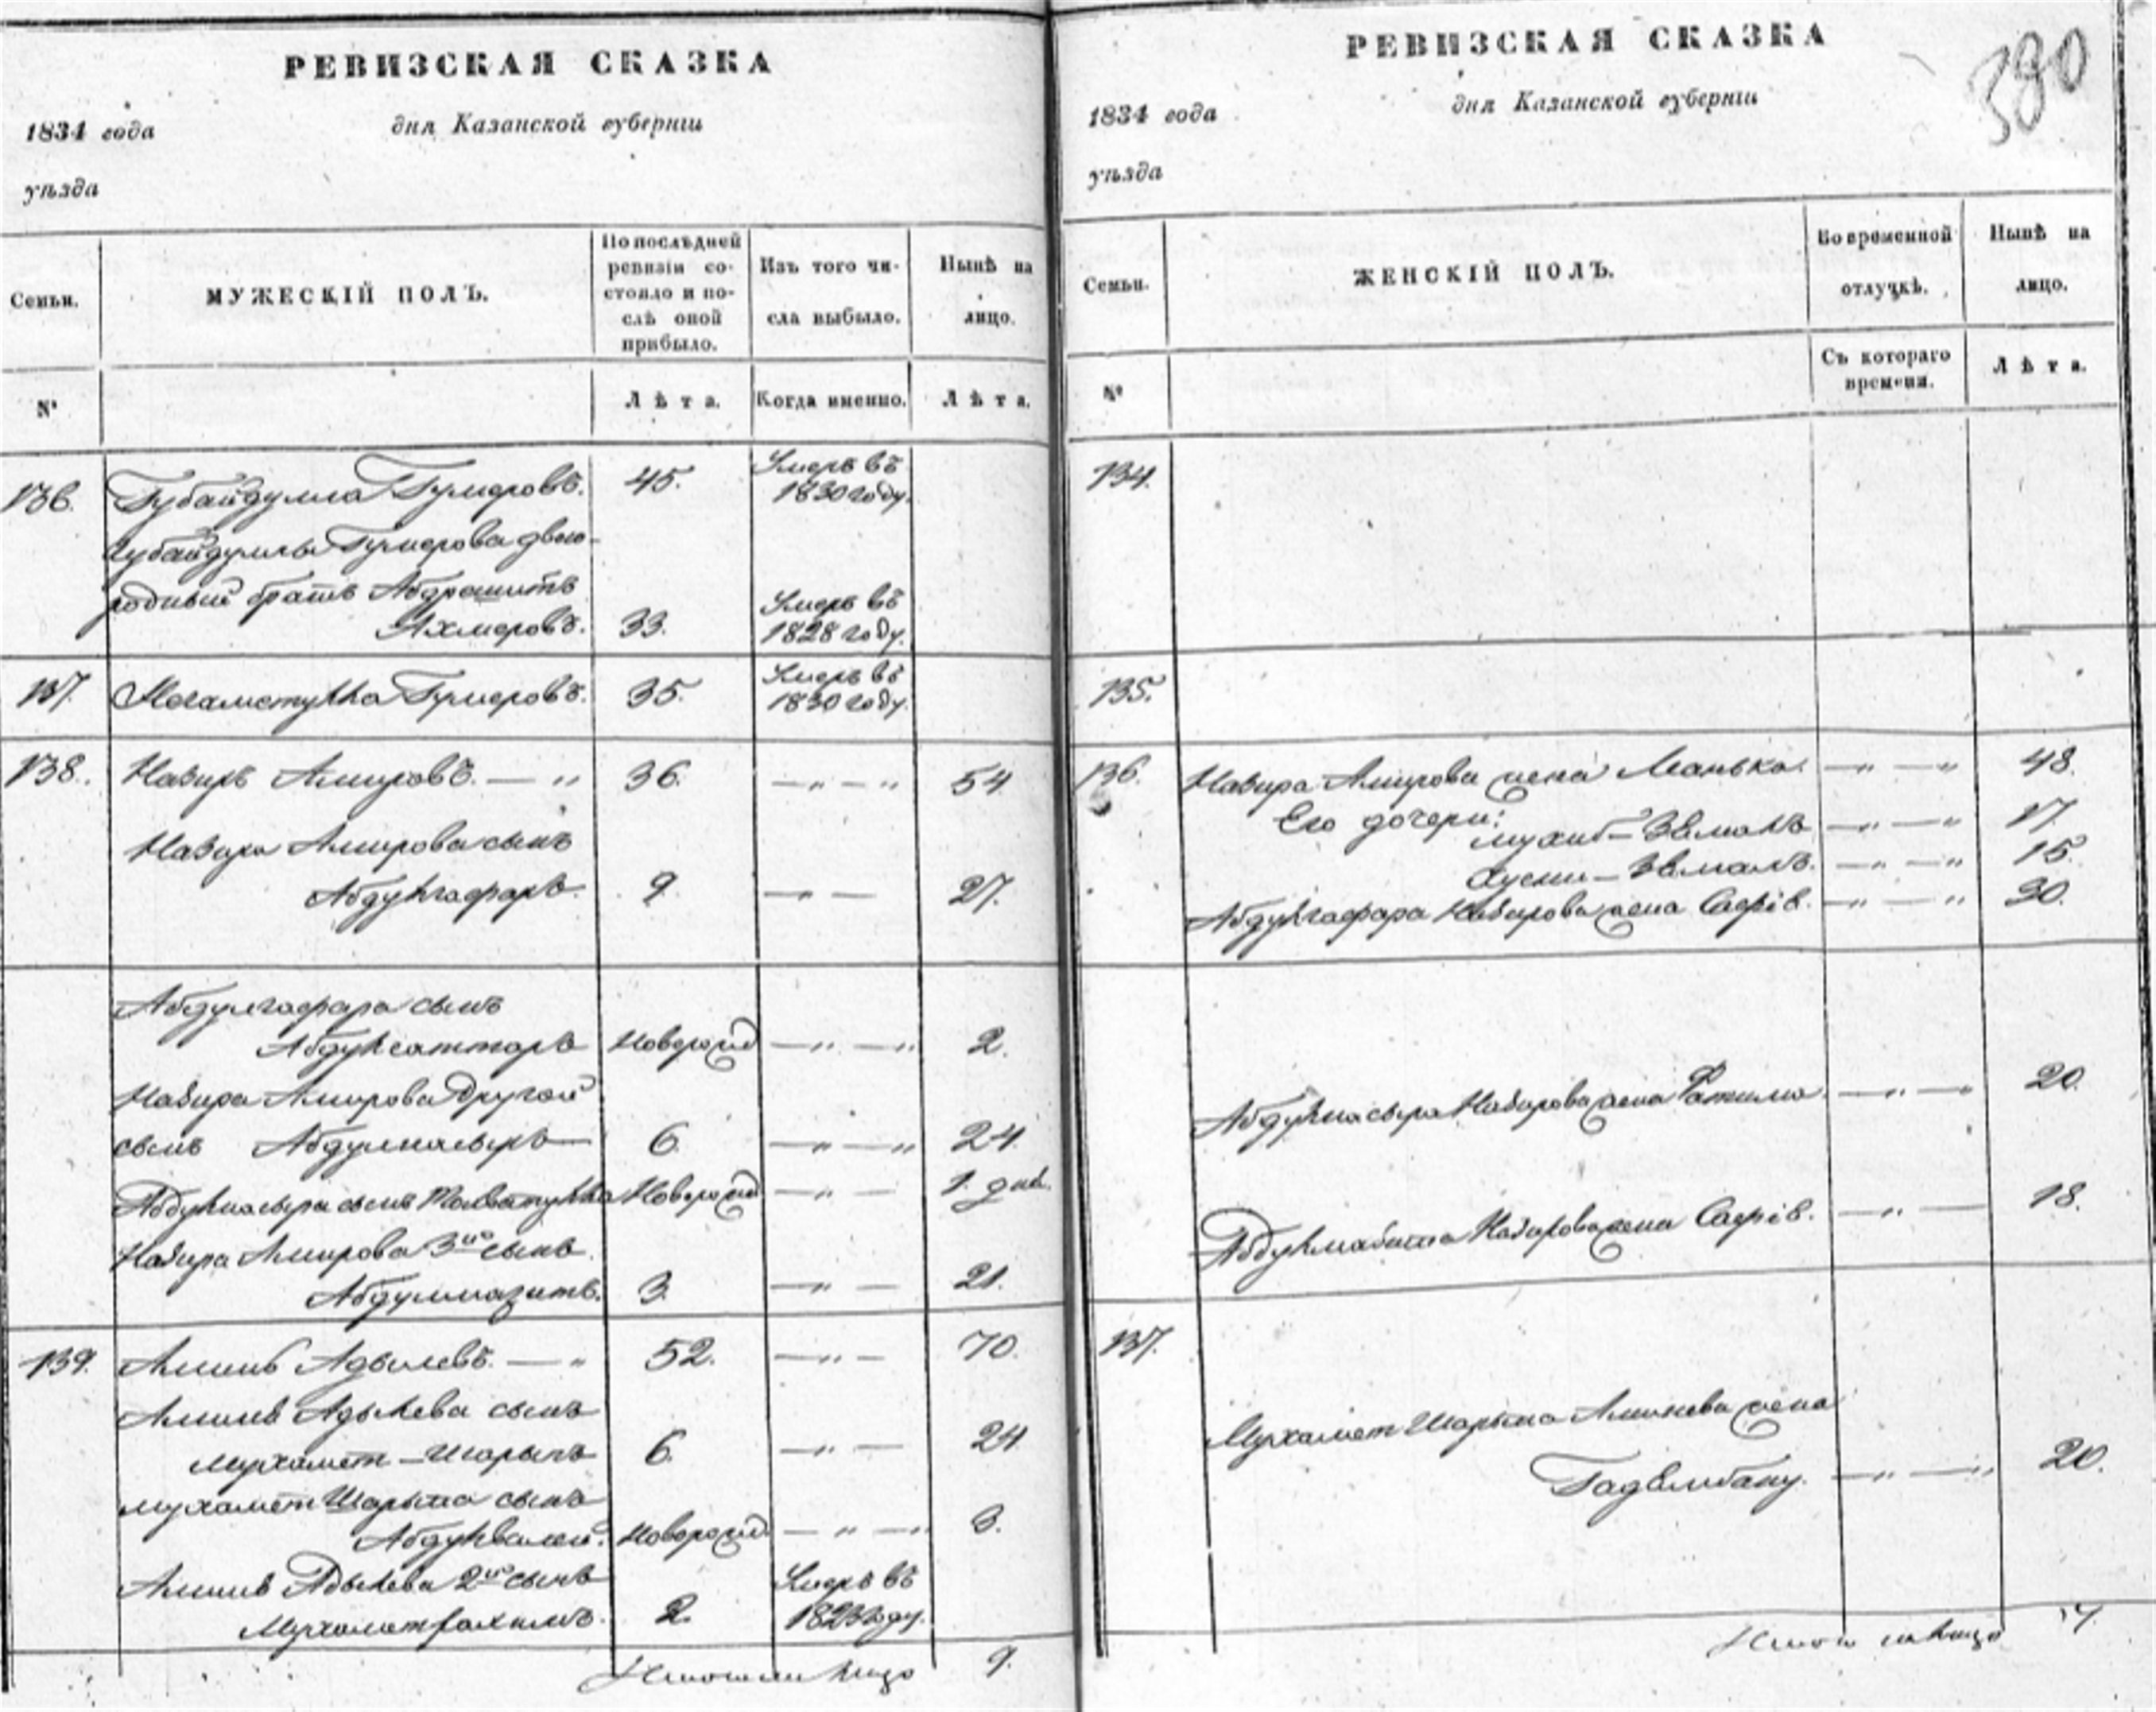 РЕВИЗСКАЯ СКАЗКА
1834 года дня Казанской губерніи
уѣзда
Семьи. МУЖЕСКІЙ ПОЛЪ. По послѣдней ревизіи состояло и послѣ оной прибыло. Изъ того числа выбыло. Нынѣ на лицо.
№ Лѣта. Когда именно. Лѣта.
136. Губайдулла Гумеровъ. 45. Умеръ въ 1830 году.
Губайдуллы Гумерова двою-
родный братъ Абдрашитъ
Ахмеровъ. 33. Умеръ въ 1828 году.
137. Гумеровъ. 35. Умеръ въ 1830 году.
138. Назиръ Амировъ. — „ 36. — „ — „ 54
Назира Амирова сынъ
Абдулгафаръ. 9. — „ — 27.
Абдулгафара сынъ
Абдулсаттаръ Новорожд — „ — „ 2.
Назира Амирова другой
сынъ Абдулнасыръ 6. — „ — „ 24.
Абдулнасыра сынъ Новорожд — „ — 1. дня.
Назира Амирова 3й сынъ
3. — „ — 21.
139. Аминъ Адылевъ. — „ 52. — „ — 70.
Аминя Адылева сынъ
Мухамет-Шарыпъ 6. — „ — 24
Мухамет Шарыпа сынъ
Абдулвалей. Новорожд — „ — „ 3.
Аминя Адылева 2й сынъ
Мухаметрахимъ. 2. Умеръ въ году.
Итого на лицо 9.
РЕВИЗСКАЯ СКАЗКА
380
1834 года дня Казанской губерніи
уѣзда
Семьи. ЖЕНСКІЙ ПОЛЪ. Во временной отлучкѣ. Нынѣ на лицо.
№ Съ котораго времени. Лѣта.
134.
135.
136. Назира Амирова жена — „ — „ 48.
Его дочери:
— „ — „ 17.
— „ — „ 15.
Абдулгафара Назирова жена — „ — „ 30.
Абдулнасыра Назирова жена Фатима — „ — 20.
Назирова жена — „ — 18.
137.
Мухамет Шарыпа Аминева жена
— „ — „ 20.
Итого на лицо 7.